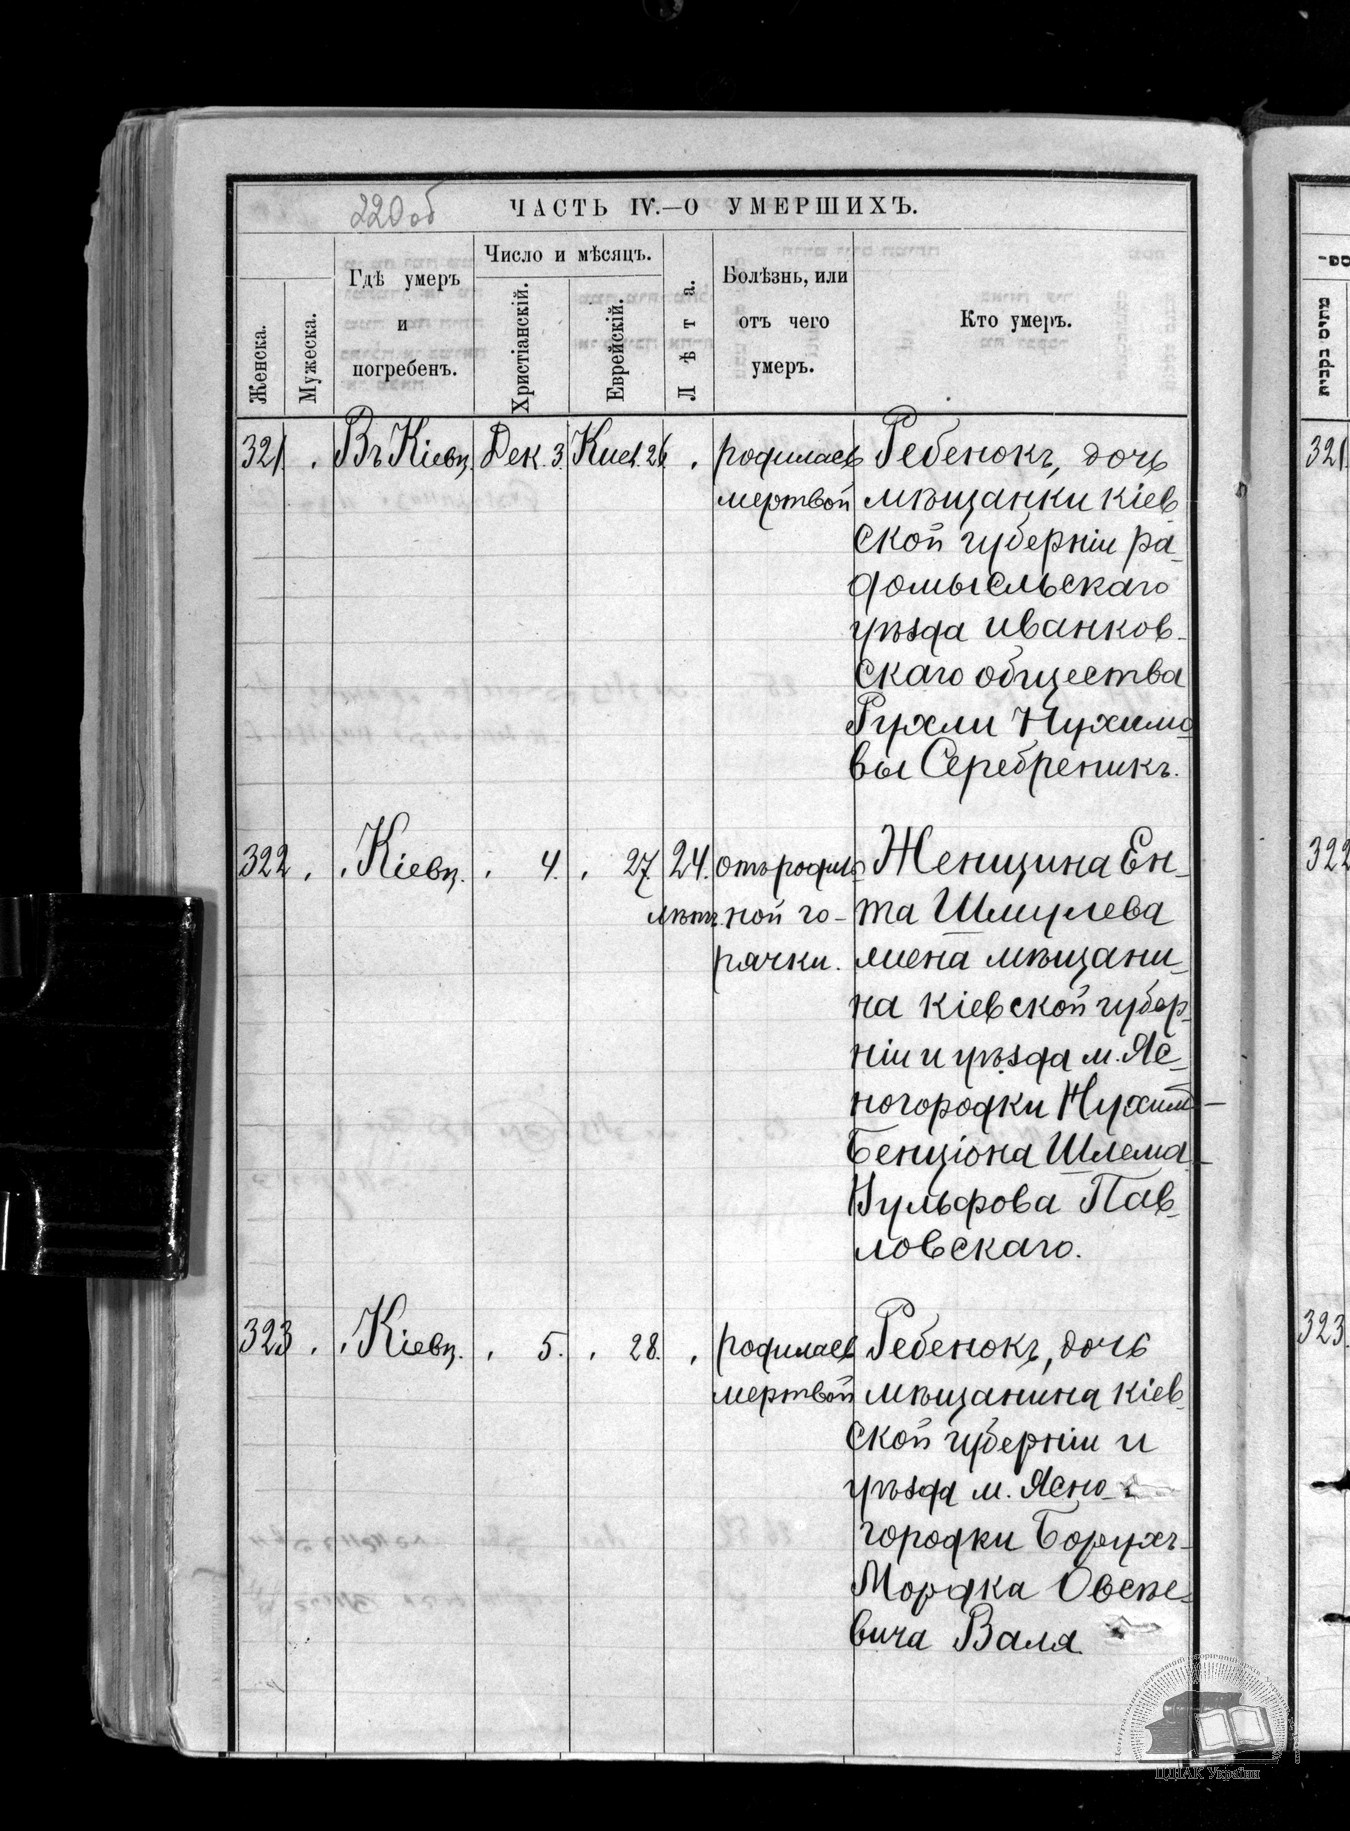 220об
ЧАСТЬ IV.—О УМЕРШИХЪ.
Женска.
Мужеска.
Гдѣ умеръ
и
погребенъ.
Число и мѣсяцъ.
Христіанскій.
Еврейскій.
Лѣта.
Болѣзнь, или
отъ чего
умеръ.
Кто умеръ.
321. Въ Кіевѣ. Дек. 3. Кисл. 26 родилась Ребенокъ, дочь
мертвой мѣщанки Кіев
ской губерніи ра-
домысльскаго
уѣзда иванков-
скаго общества
Рухли Нухимо
вы Серебреникъ.
322 Кіевѣ. 4. 27 24. отъ родиль- Женщина Ен-
лѣтъ. ной го- та Шмулева
рячки. жена мѣщани-
на Кіевской губер-
ніи и уѣзда м. Яс-
ногородки Нухим-
Бенціона Шлема-
Вульфова Пав-
ловскаго.
323 Кіевѣ. 5. 28. родилась Ребенокъ, дочь
мертвой мѣщанина Кіев
ской губерніи и
уѣзда м. Ясно-
городки Борухъ-
Мордка Овсѣе-
вича Валя
321
322
323
ЦДІАК України